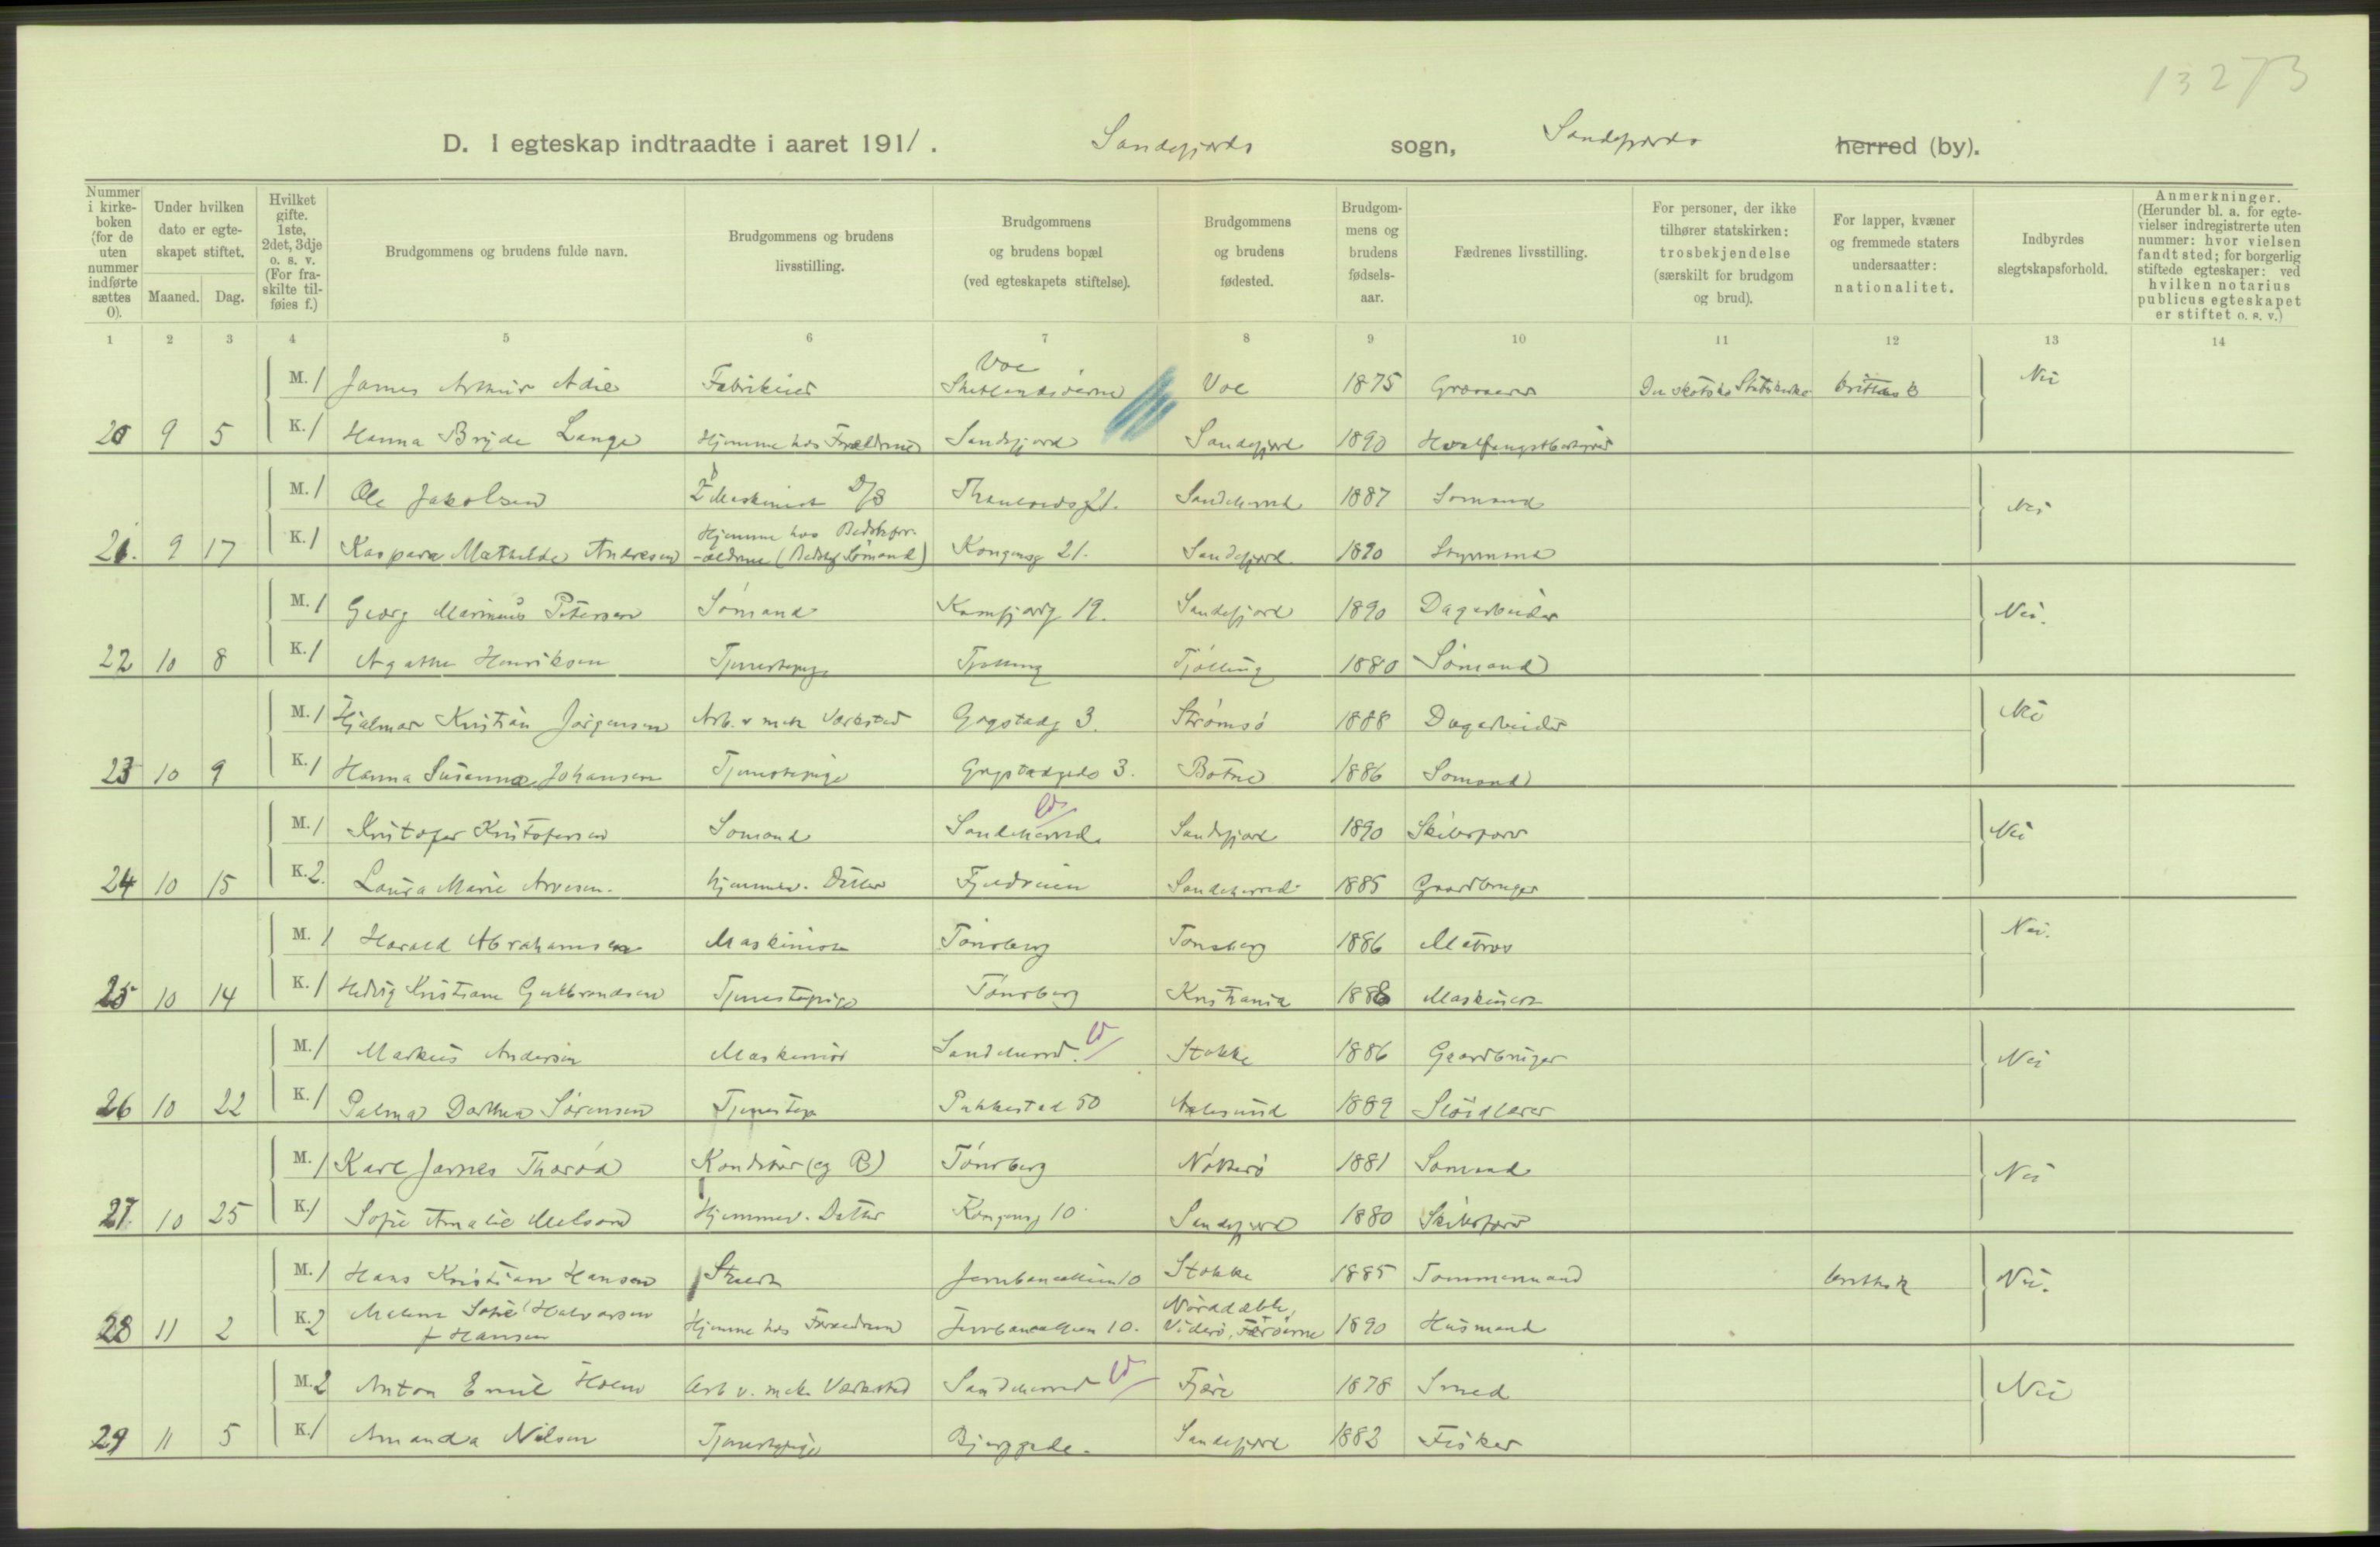 13273
D. I egteskap indtraadte i aaret 1911. Sandefjords sogn, Sandefjords herred (by).
Nummer i kirkeboken (for de uten nummer indførte sættes 0).
Under hvilken dato er egteskapet stiftet.
Maaned. Dag.
Hvilket gifte. 1ste, 2det, 3dje o. s. v. (For fraskilte tilføies f.)
Brudgommens og brudens fulde navn.
Brudgommens og brudens livsstilling.
Brudgommens og brudens bopæl (ved egteskapets stiftelse).
Brudgommens og brudens fødested.
Brudgommens og brudens fødselsaar.
Fædrenes livsstilling.
For personer, der ikke tilhører statskirken: trosbekjendelse (særskilt for brudgom og brud).
For lapper, kvæner og fremmede staters undersaatter: nationalitet.
Indbyrdes slegtskapsforhold.
Anmerkninger. (Herunder bl. a. for egtevielser indregistrerte uten nummer: hvor vielsen fandt sted; for borgerlig stiftede egteskaper: ved hvilken notarius publicus egteskapet er stiftet o. s. v.)
1 2 3 4 5 6 7 8 9 10 11 12 13 14
M. 1 James Arthur Adie Fabrikeier Voe Shetlandsöerne Voe 1875 Den skotske Statskirke britisk Nei
20 9 5 K. 1 Hanna Bryde Lange Hjemme hos Forældrene Sandefjord Sandefjord 1890 Hvalfangstbestyrer
M. 1 Ole Jakobsen 2 Maskinist D/S 21. Sandeherred 1887 Sömand Nei
21. 9 17 K. 1 Kaspara Mathilde Andresen Hjemme hos Bedstefor-
ældrene (Bedstef Sömand) Kongensg 21. Sandefjord 1890 Styrmand
M. 1 Georg Marinius Petersen Sömand Kamfjordg 19. Sandefjord 1890 Dagarbeider Nei.
22 10 8 K. 1 Agathe Henriksen Tjenestepige Tjölling Tjölling 1880 Sömand
M. 1 Hjalmar Kristian Jörgensen Arb. v mek Værksted Gogstadg 3. Strömsö 1888 Dagarbeider Nei
23 10 9 K. 1 Hanna Susanna Johansen Tjenestepige Gogstadgade 3. Botne 1886 Sömand
M. 1 Kristofer Kristofersen Sömand Sandeherred Sandefjord 1890 Skibsfører Nei
24 10 15 K. 2. Laura Marie Arvesen. hjemmev. Datter Fjeldveien Sandeherred 1885 Gaardbruger
M. 1 Harald Abrahamsen Maskinist Tönsberg Tönsberg 1886 Matros Nei.
25 10 14 K. 1 Hedvig Kristiane Gulbrandsen Tjenestepige Tönsberg Kristiania 1888 Maskinist
M. 1 Markus Andersen Maskinist Sandeherred. Stokke 1886 Gaardbruger Nei
26 10 22 K. 1 Palma Dorthea Sörensen Tjenestep Pukkestad 50 Aalesund 1889 Slöidlærer
M. 1 Karl James Thoröd Konditor (eg B) Tönsberg Nötterö 1881 Sömand Nei
27. 10 25 K. 1 Sofie Amalie Melsom Hjemmev. Datter Kongensg 10 Sandefjord 1880 Skibsfører
M. 1 Hans Kristian Hansen Jernbanealleen 10 Stokke 1885 Tömmermand britisk Nei.
28 11 2 K. 2 Sofie Halvorsen
f Hansen Hjemme hos Forældrene Jernbanealleen 10. Viderö, Færöerne 1890 Husmand
M. 2 Anton Emil Holm Arb v. mek. Værksted Sandeherred Fjære 1878 Smed Nei
29 11 5 K. 1 Amanda Nilsen Tjenestepige Bjerggade. Sandefjord 1882 Fisker